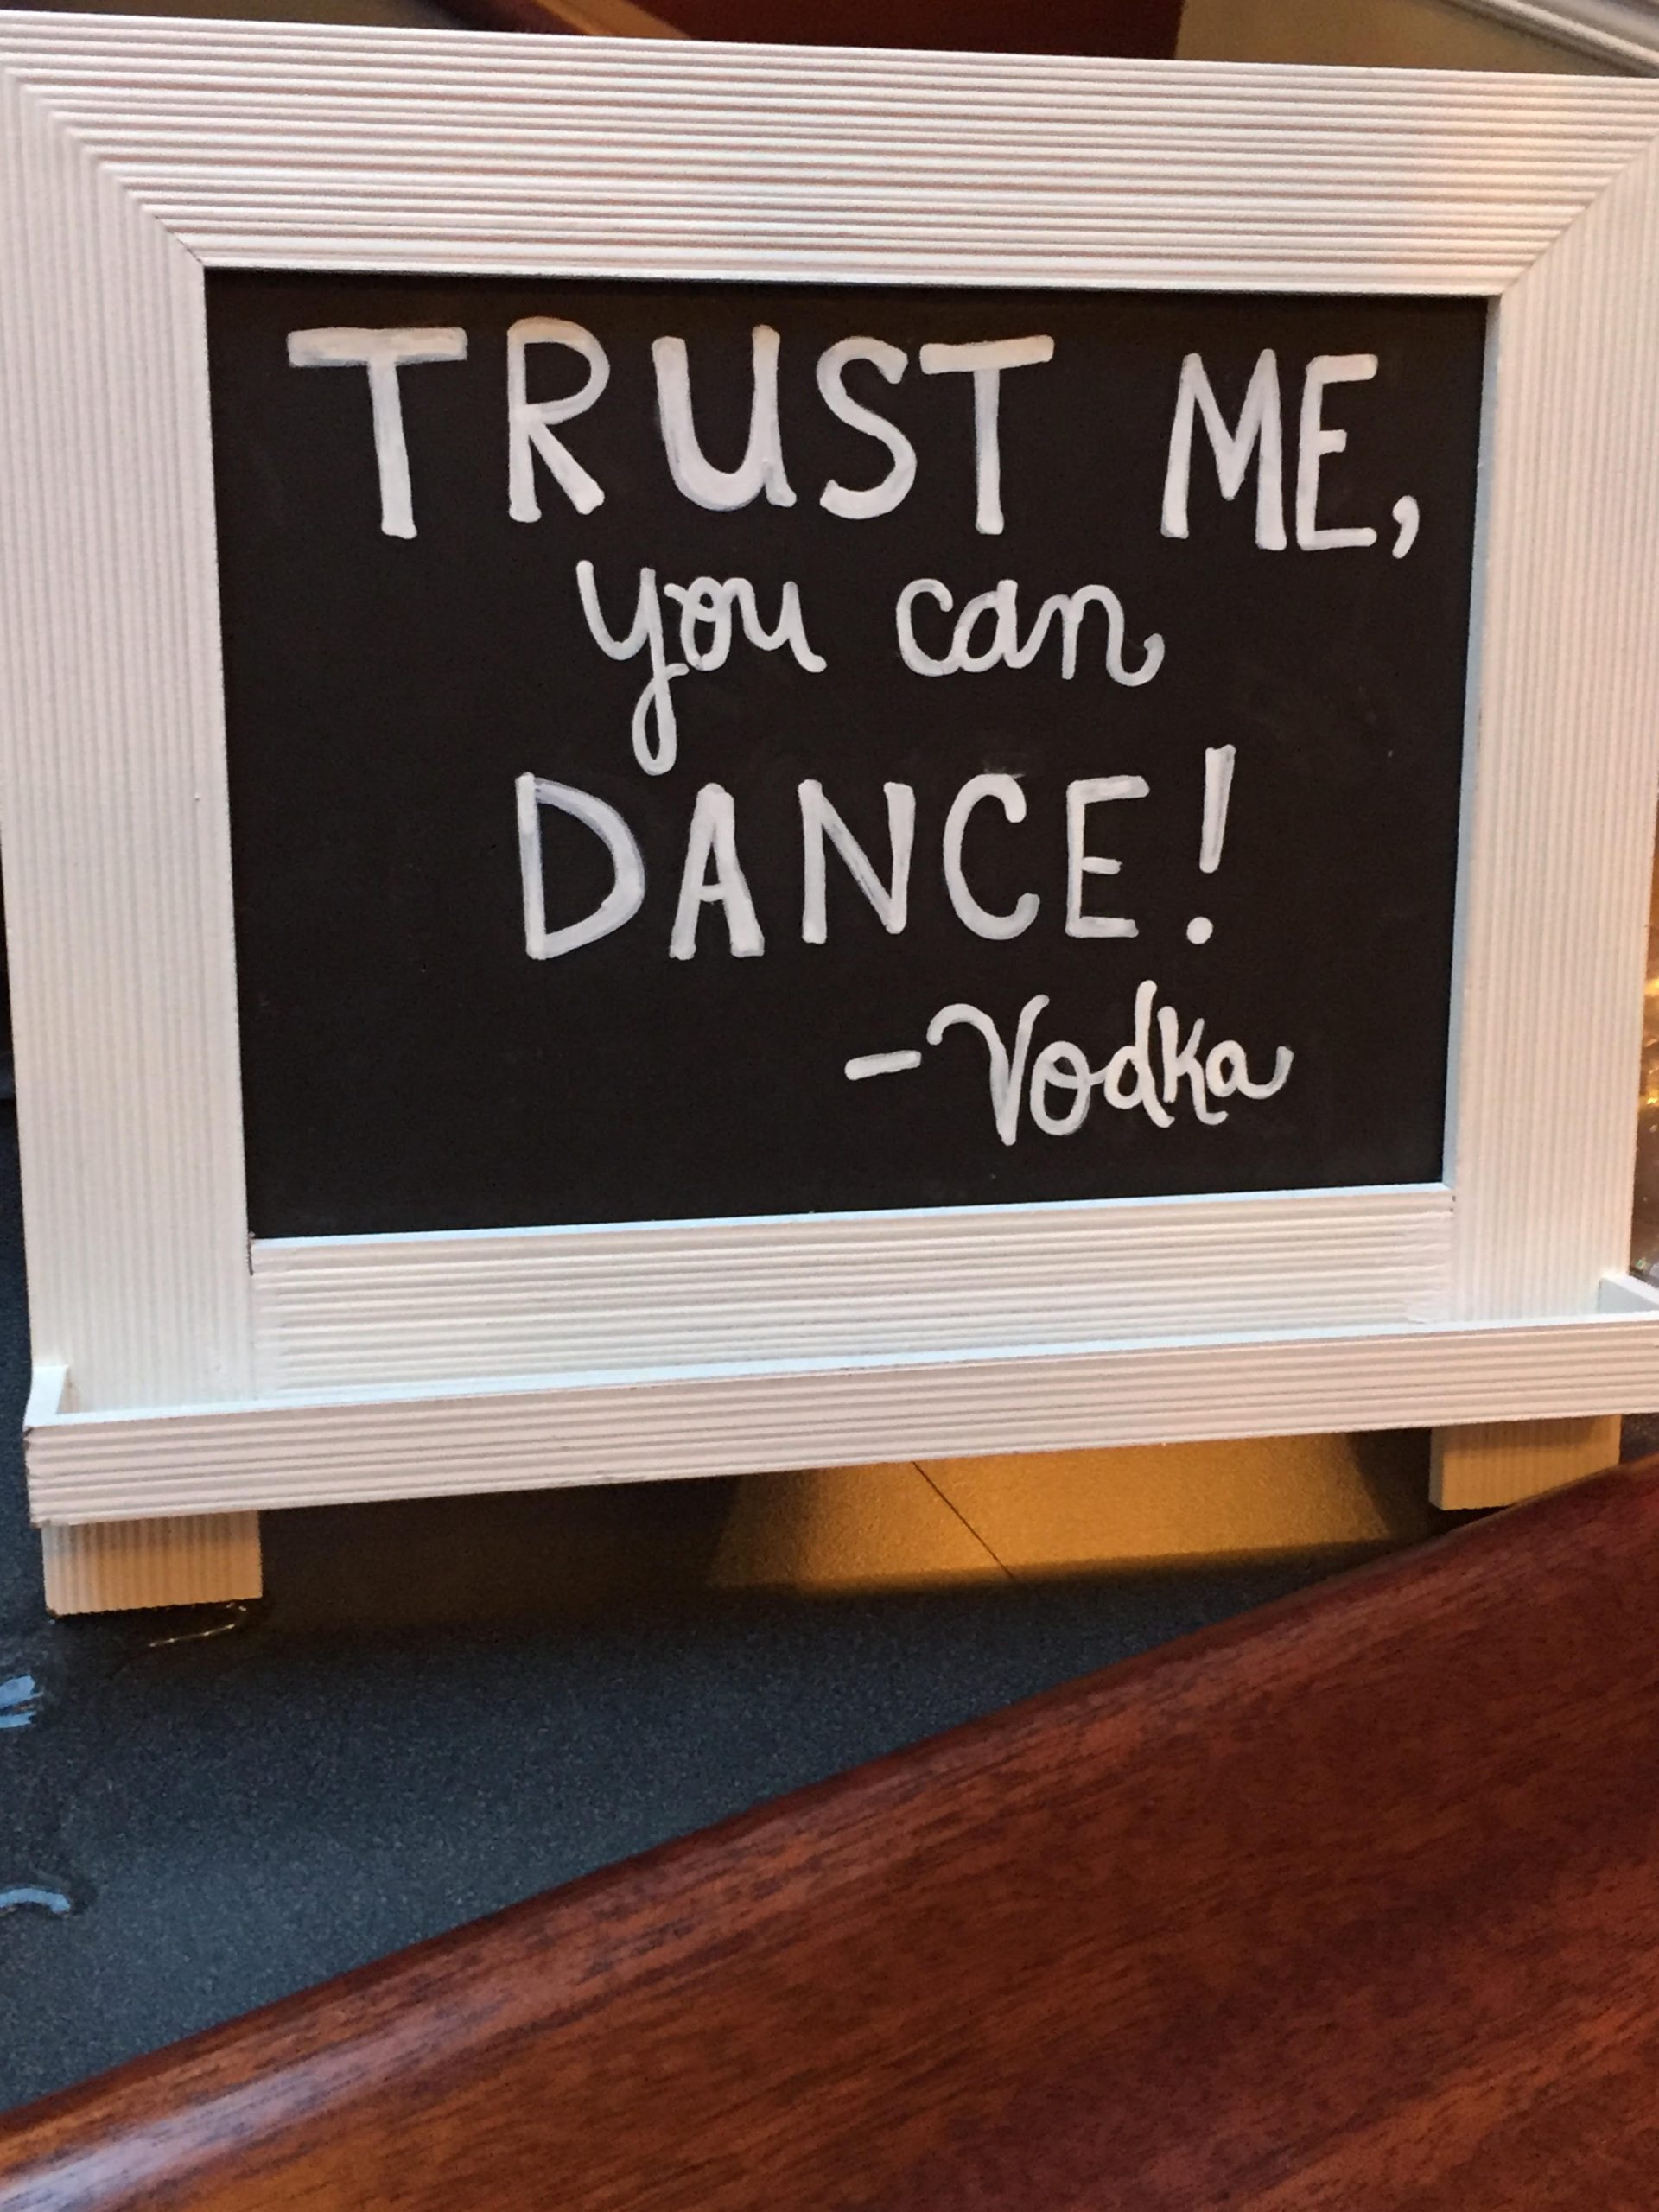 TRUST ME,
you can
DANCE!
-Vodka